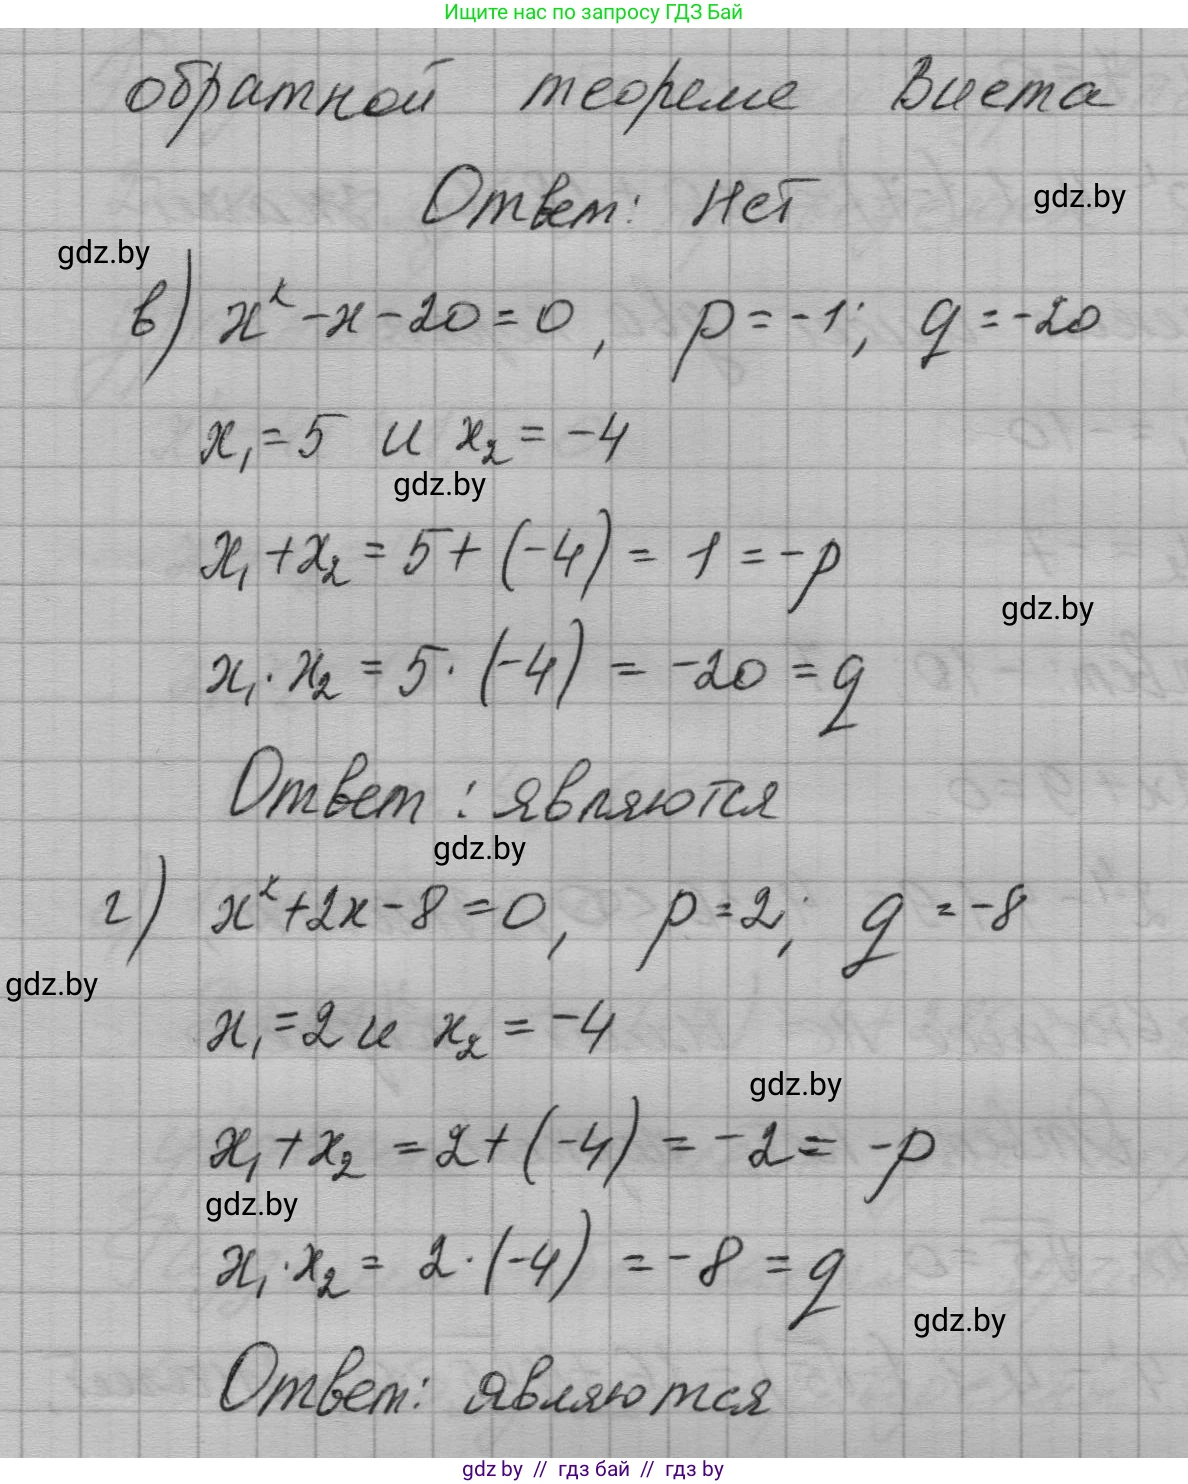 Ищите нас по запросу ГДЗ Бай
обратной теореме Виета
Ответ: Нет
gdz.by
gdz.by
в) x² - x - 20 = 0, p = -1; q = -20
x₁ = 5 и x₂ = -4
gdz.by
x₁ + x₂ = 5 + (-4) = 1 = -p
gdz.by
x₁ · x₂ = 5 · (-4) = -20 = q
Ответ: являются
gdz.by
г) x² + 2x - 8 = 0, p = 2; q = -8
gdz.by
x₁ = 2 и x₂ = -4
gdz.by
x₁ + x₂ = 2 + (-4) = -2 = -p
gdz.by
x₁ · x₂ = 2 · (-4) = -8 = q
gdz.by
Ответ: являются
gdz by // гдз бай // гдз by